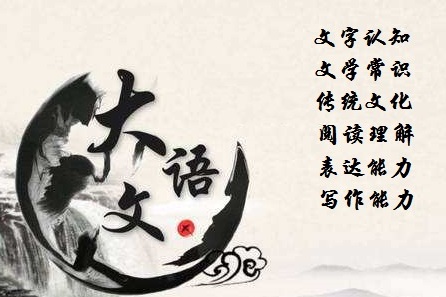 大语文
文字认知
文学常识
传统文化
阅读理解
表达能力
写作能力